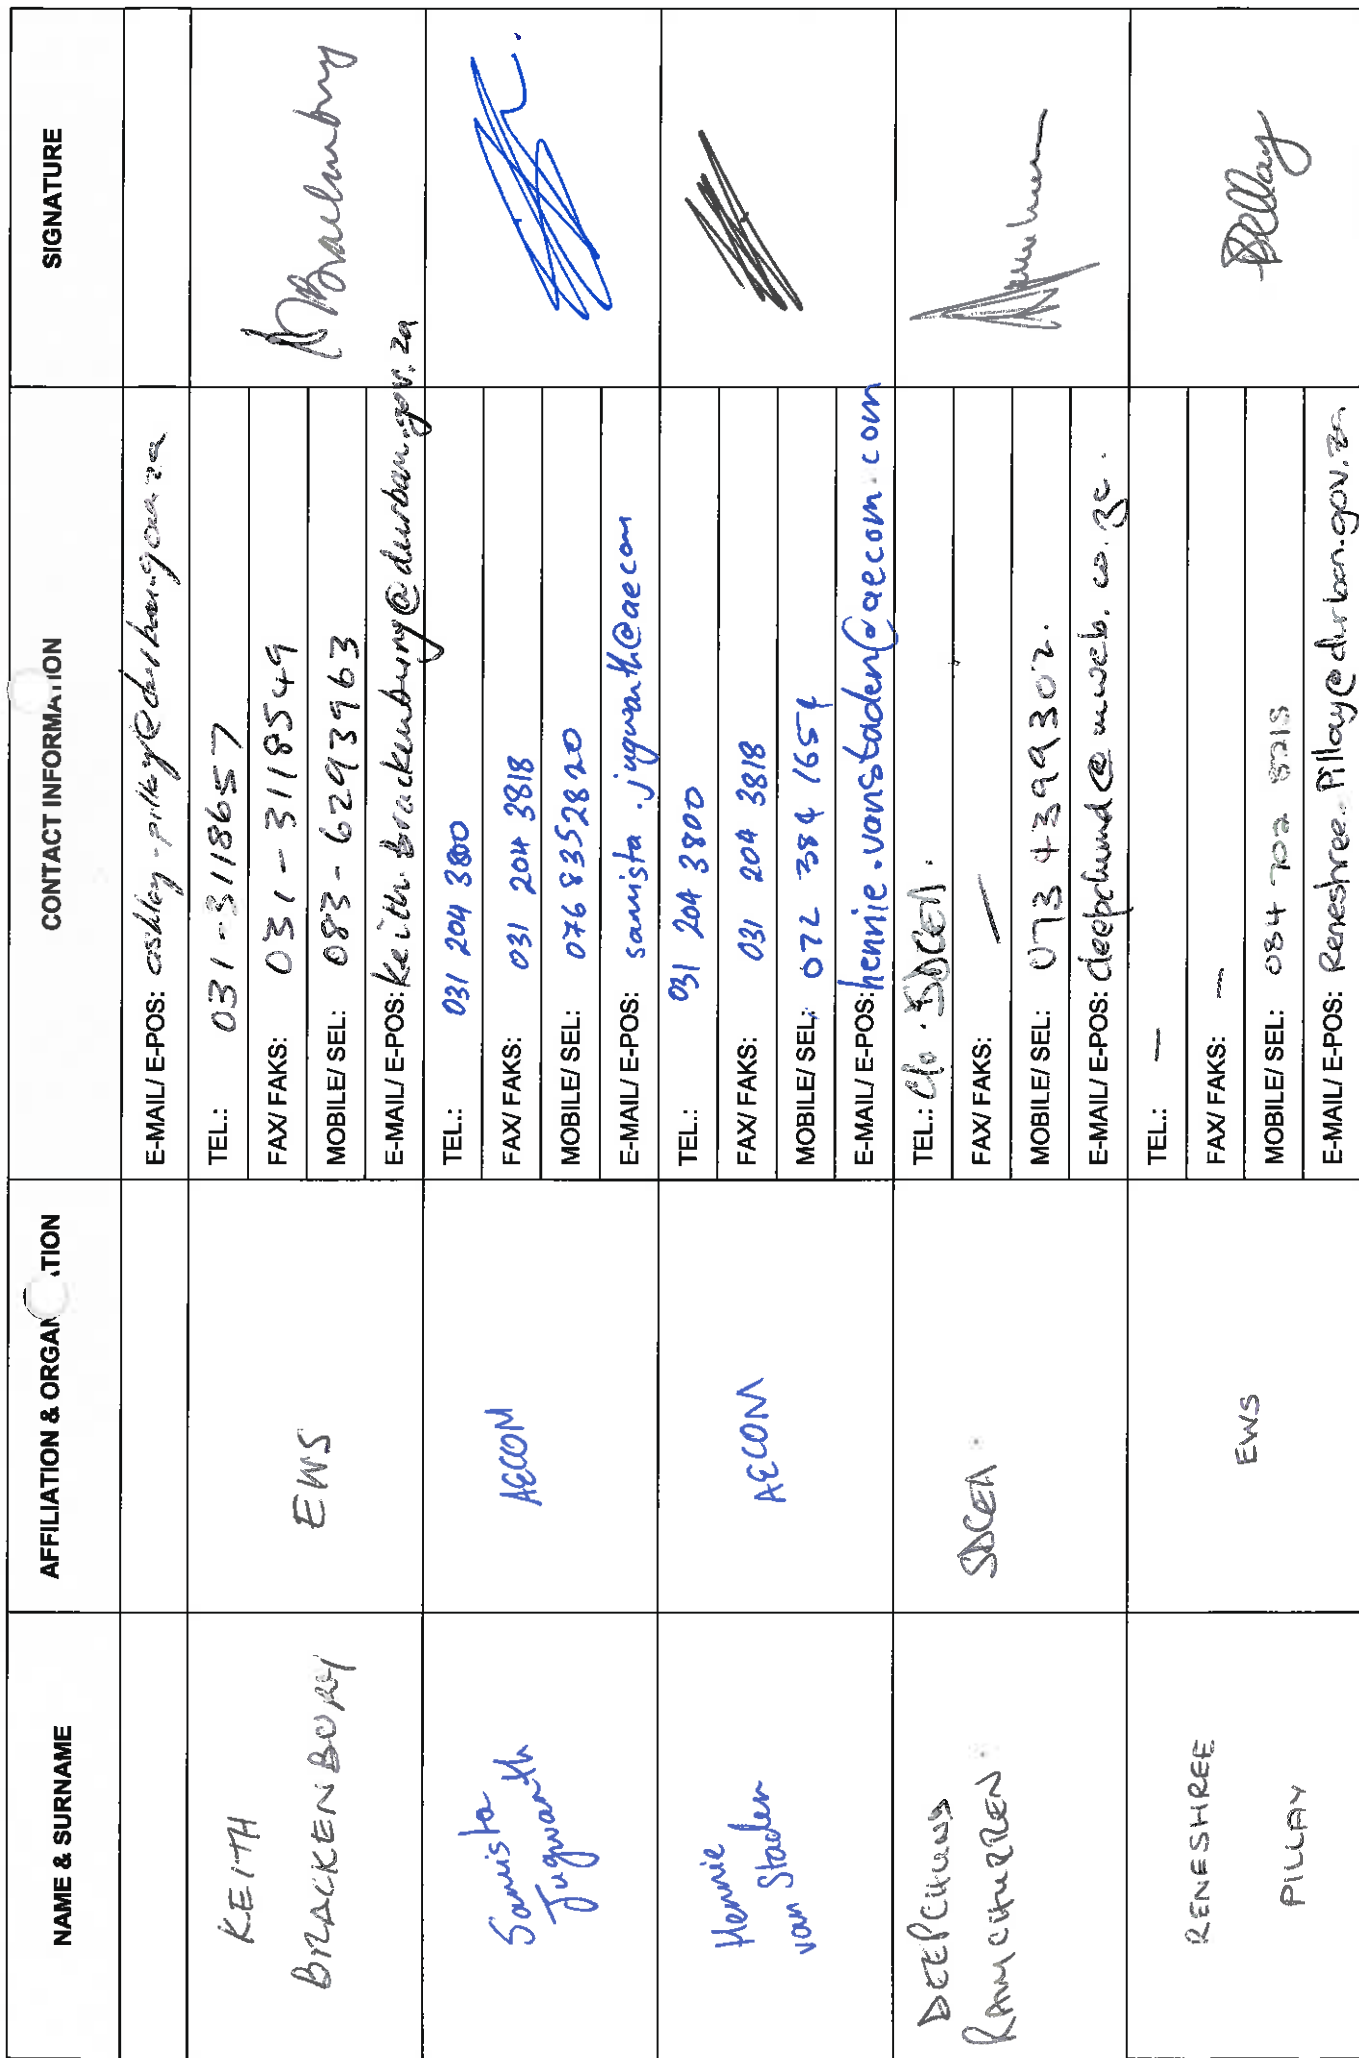 NAME & SURNAME
AFFILIATION & ORGAN TION
CONTACT INFORMATION
SIGNATURE
E-MAIL/ E-POS: ashley.pillay@durban.gov.za
KEITH
BRACKENBURY
EWS
TEL.: 031-3118657
FAX/ FAKS: 031-3118549
MOBILE/ SEL: 083-6293963
E-MAIL/ E-POS: keith.brackenbury@durban.gov.za
Sanista
Jugwanth
AECOM
TEL.: 031 204 3800
FAX/ FAKS: 031 204 3818
MOBILE/ SEL: 076 8352820
E-MAIL/ E-POS: sanista.jugwanth@aecom
Hennie
van Staden
AECOM
TEL.: 031 204 3800
FAX/ FAKS: 031 204 3818
MOBILE/ SEL: 072 384 1654
E-MAIL/ E-POS: hennie.vanstaden@aecom.com
DEEPCHUND
RAMCHURREN
SDCEA
TEL.: C/o. SDCEA.
FAX/ FAKS: —
MOBILE/ SEL: 073 4399302.
E-MAIL/ E-POS: deepchund@mweb.co.za.
RENESHREE
PILLAY
EWS
TEL.: —
FAX/ FAKS: —
MOBILE/ SEL: 084 702 8215
E-MAIL/ E-POS: Reneshree.Pillay@durban.gov.za